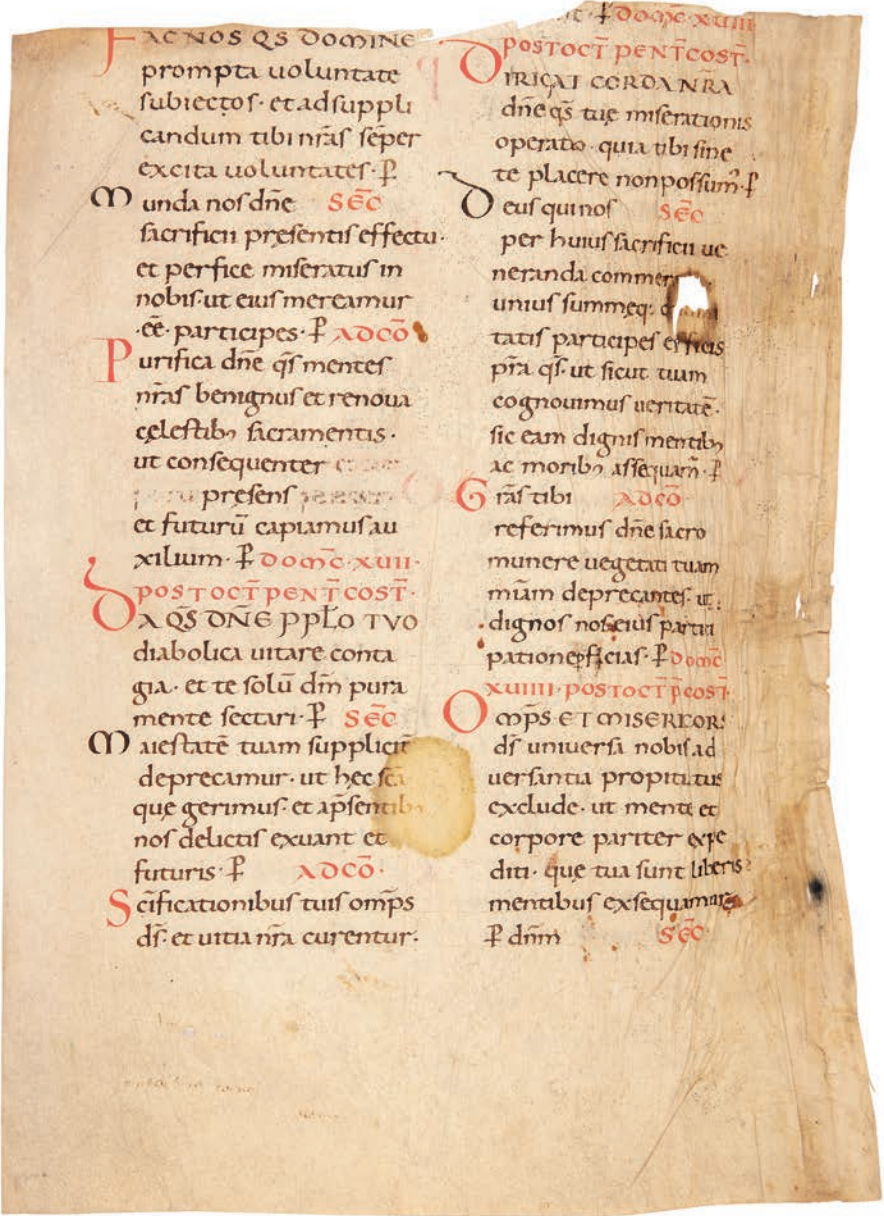 FAC NOS QS DOMINE
prompta uoluntate
subiectos· et ad suppli
candum tibi nr̄as sēper
excita uoluntates· P̄
Munda nos dn̄e SEC̄
sacrificii pręsentis effectu·
et perfice miseratus in
nobis· ut eius mereamur
·eē· participes· P̄ AD CŌ
Purifica dn̄e qs̄ mentes
nr̄as benignus et renoua
cęlestibꝰ sacramentis·
ut consequenter
pręsens
et futurū capiamus au
xilium· P̄ DOMC̄· XVII·
POST OCT̄ PENT̄COST̄·
DA QS̄ DN̄E PPLO TVO
diabolica uitare conta
gia· et te solū dm̄ pura
mente sectari· P̄ SEC̄
Maiestatē tuam suppliciť
deprecamur· ut hec sc̄a
que gerimus· et ap̄sentibꝰ
nos delictis exuant et
futuris· P̄ AD CŌ·
Sc̄ificationibus tuis omp̄s
ds̄· et uitia nr̄a curentur·
P̄ DOMC̄ XVIII
POST OCT̄ PENT̄COST̄·
DIRIGAT CORDA NR̄A
dn̄e qs̄ tuę miserationis
operatio· quia tibi sine
te placere non possum̄· P̄
Deus qui nos SEC̄
per huius sacrificii ue
neranda commer
unius summęq:
tatis participes efficis
pr̄a qs̄· ut sicut tuam
cognouimus ueritatē·
sic eam dignis mentibꝰ
ac moribꝰ assequam̄· P̄
Gr̄as tibi AD CŌ
referimus dn̄e sacro
munere uegetati tuam
mīam deprecantes· ut
dignos nos eius partici
patione ꝑficias· P̄ DOMC̄
XVIIII· POST OCT̄ P̄COST̄·
OMP̄S ET MISERICORS
ds̄ uniuersa nobis ad
uersantia propitiatus
exclude· ut mente et
corpore pariter expe
diti· que tua sunt liberis
mentibus exsequamur
P̄ dn̄m SEC̄